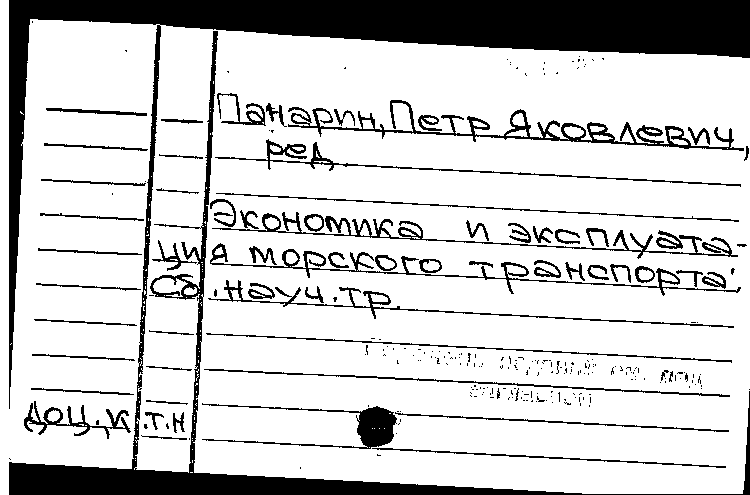 Панарин, Петр Яковлевич,
ред.
Экономика и эксплуата-
ция морского транспорта:
Сб. науч. тр.
доц., к.т.н